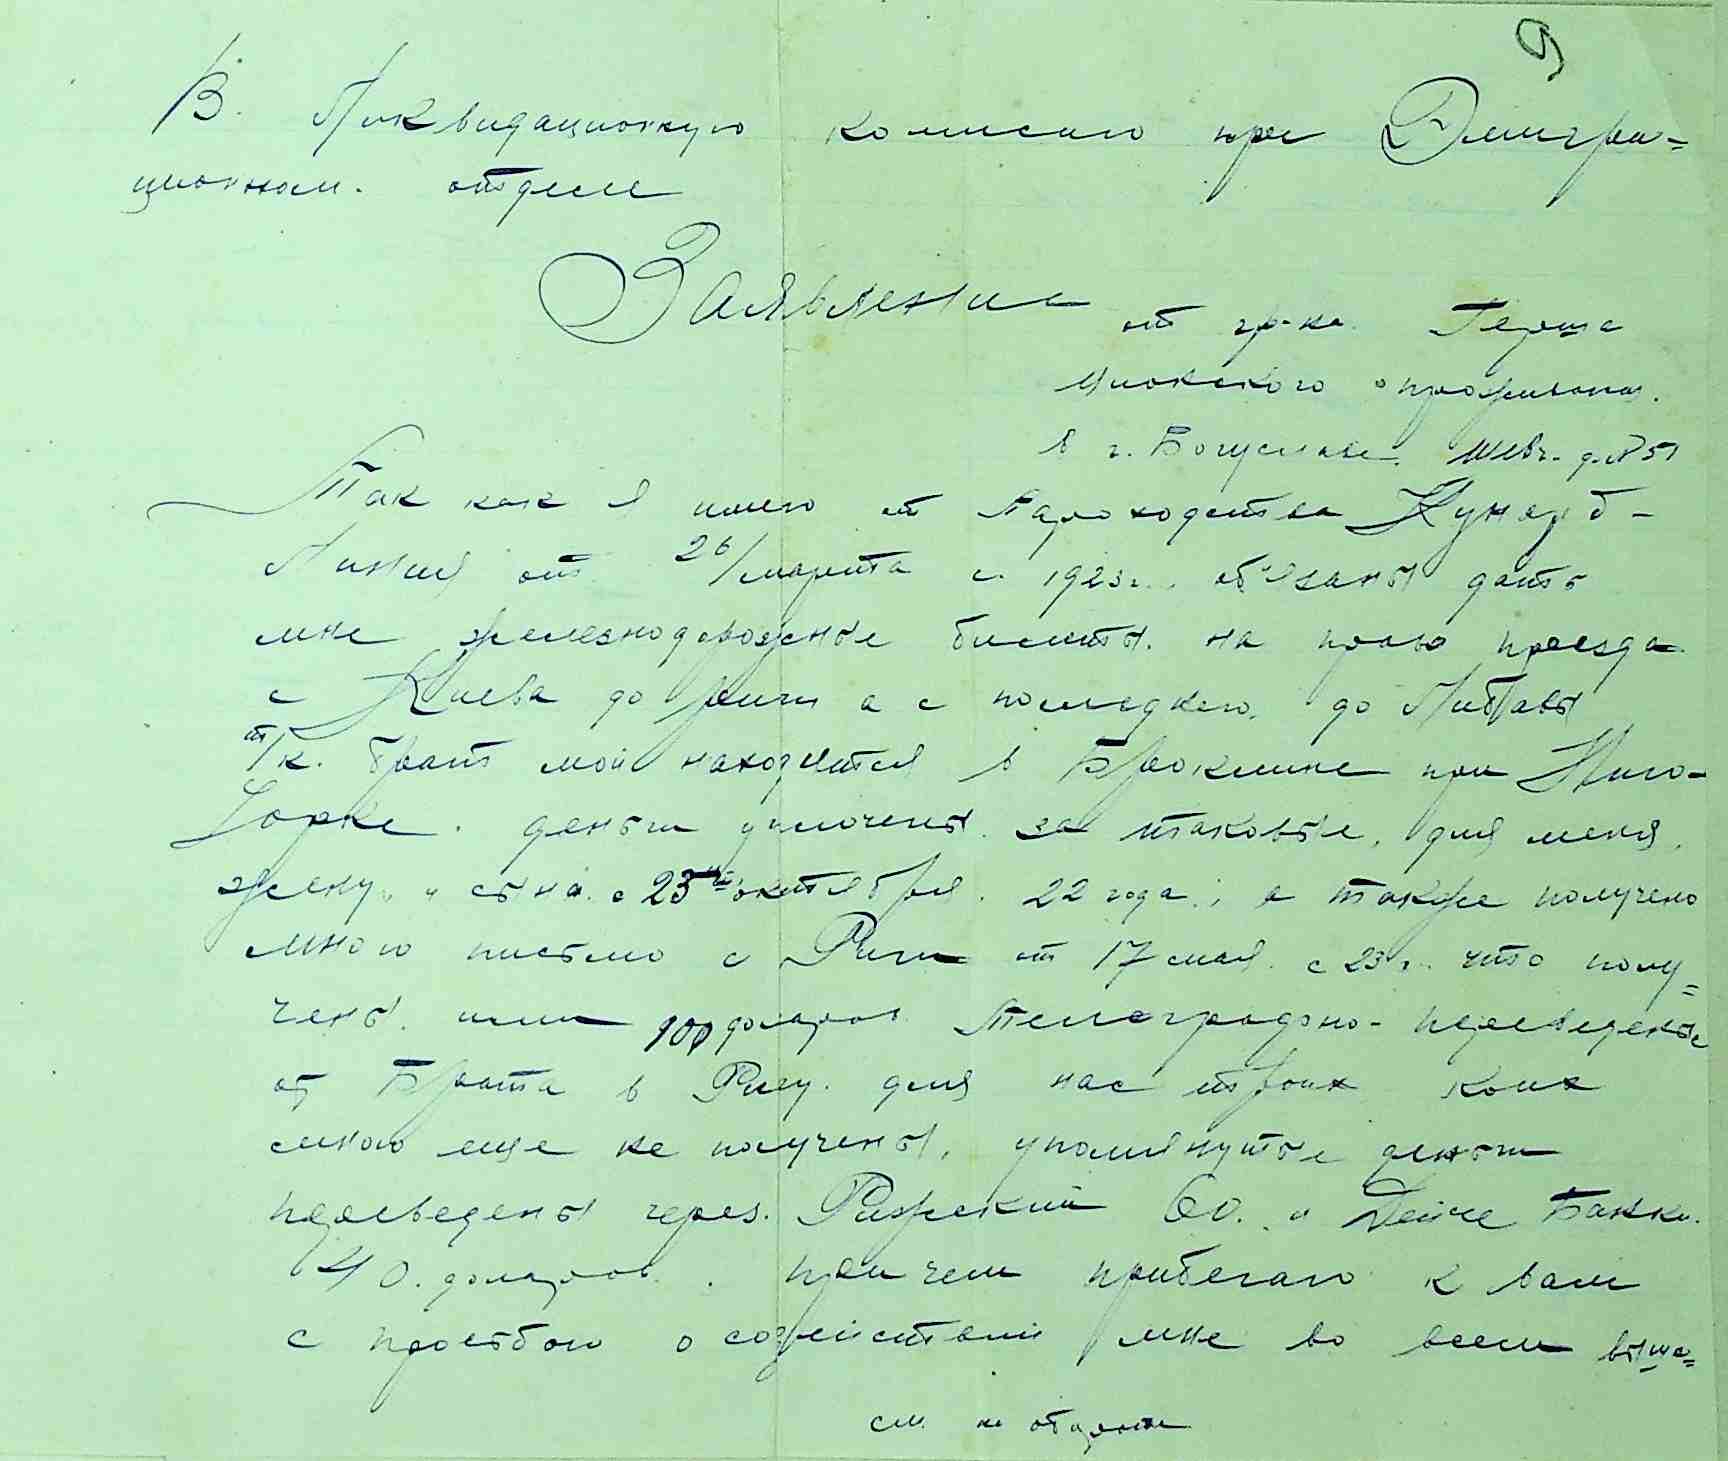 9
В. Ликвидационную комисию при Эмигра=
ционном. отделе
Заявление
от гр-на. Герша
проживающ.
в г. Богуславе. Шевч. д. № 51
Так как я имею от Пароходства Кунард-
Линия от 26/марта с. 1923 г. об'язаны дать
мне железнодорожные билеты. на право проезда
с Киева до Риги а с последнего. до Либавы
т/к. брат мой находится в Бруклине при Нью-
Iорке. деньги уплочены. за таковые, для меня,
жену, и сына. с 23го октября. 22 года., а также получено
мною письмо с Риги от 17 мая. с 23 г. что полу=
чены. ими 100 доларов телеграфно- переведены
от Брата в Ригу. для нас троих коих
мною еще не получены, упомянутые деньги
переведены через. Рижский 60. и Дейче Банки.
40. доларов.. причем прибегаю к вам
с просьбою о содействии мне во всем выше=
см. на обороте